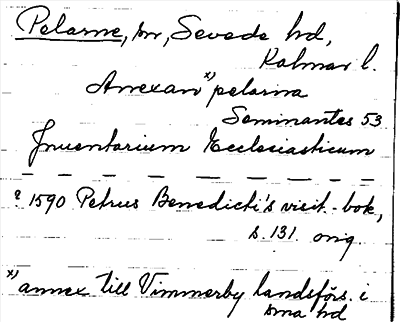 Pelarne, sn, Sevede hd,
Kalmar l.
Anexan x) pelarna
Seminantes 53
Inuentarium Ecclesiasticum
? 1590 Petrus Benedicti's visit.-bok,
s. 131. orig.
x) annex till Vimmerby landsförs. i
sma hd